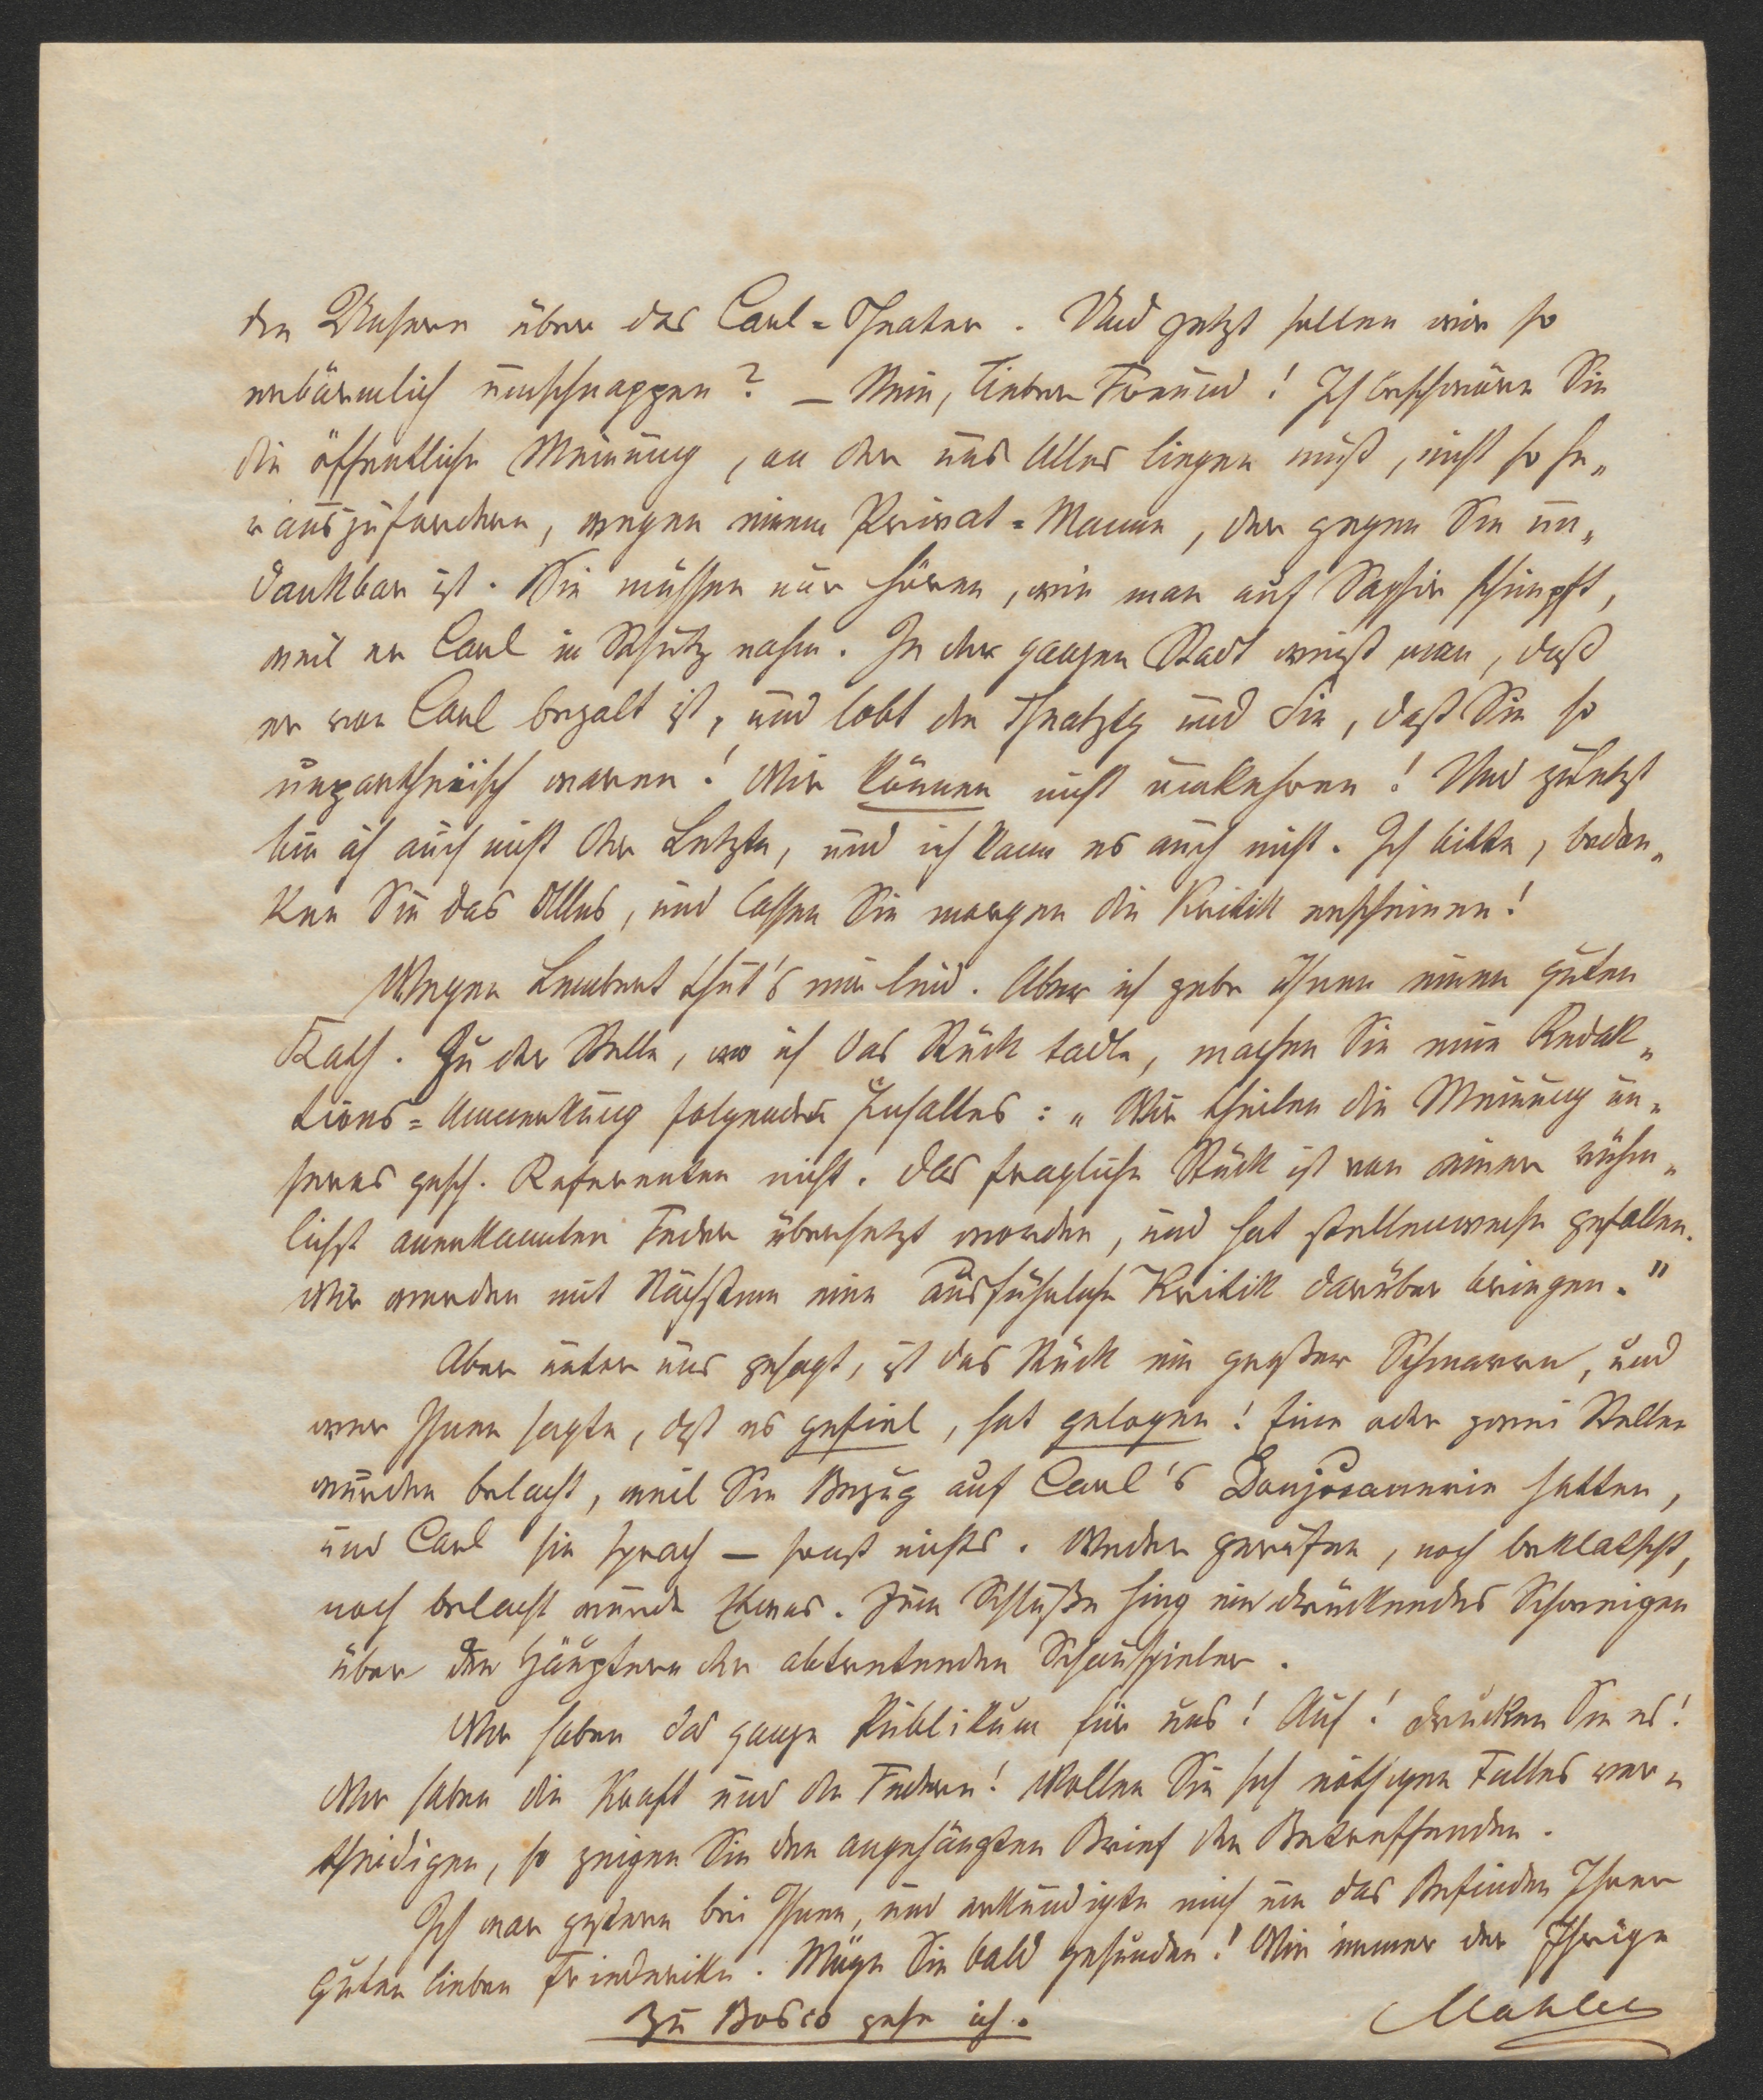 den Unsern über das Carl=Theater. Und jetzt sollen wir so
erbärmlich umschnappen? – Nein, lieber Freund! Ich beschwöre Sie
die öffentliche Meinung, an der uns Alles liegen muß, nicht so he„
rauszufordern, wegen einem Privat=Manne, der gegen Sie un„
dankbar ist. Sie müssen nur hören, wie man auf Saphir schimpft,
weil er Carl in Schutz nahm. In der ganzen Stadt weißt man, daß
er von Carl bezalt ist, und lobt die Theatztg und Sie, daß Sie so
unpartheiisch waren! Wir können nicht umkehren! Und zuletzt
bin ich auch nicht der Letzte, und ich kann es auch nicht. Ich bitte, beden„
ken Sie das Alles, und lassen Sie morgen die Kritik erscheinen!
Wegen Lembert thut's mir leid. Aber ich gebe Ihnen einen guten
Rath. Zu der Stelle, wo ich das Stück tadle, machen Sie eine Redak„
tions=Anmerkung folgenden Inhaltes: „Wir theilen die Meinung un„
seres gesch. Referenten nicht. Das fragliche Stück ist von einer rühm„
lichst anerkannten Feder übersetzt worden, und hat stellenweise gefallen.
Wir werden mit Nächstem eine ausführliche Kritik darüber bringen."
Aber unter uns gesagt, ist das Stück ein großer Schmarrn, und
wer Ihnen sagte, daß es gefiel, hat gelogen! Eine oder zwei Stellen
wurden belacht, weil Sie Bezug auf Carl's Donjuanerie hatten,
und Carl sie sprach – sonst nichts. Weder gerufen, noch beklatscht,
noch belacht wurde Etwas. Zum Schluße hing ein drückendes Schweigen
über den Häuptern der abtretenden Schauspieler.
Wir haben das ganze Publikum für uns! Auf! drucken Sie es!
Wir haben die Kraft und die Federn! Wollen Sie sich nöthigen Falles ver„
theidigen, so zeigen Sie den angehängten Brief den Betreffenden.
Ich war gestern bei Ihnen, und erkundigte mich um das Befinden Ihrer
guten lieben Friederike. Möge Sie bald gesunden! Wie immer der Ihrige
Zu Bosco gehe ich. Mahler